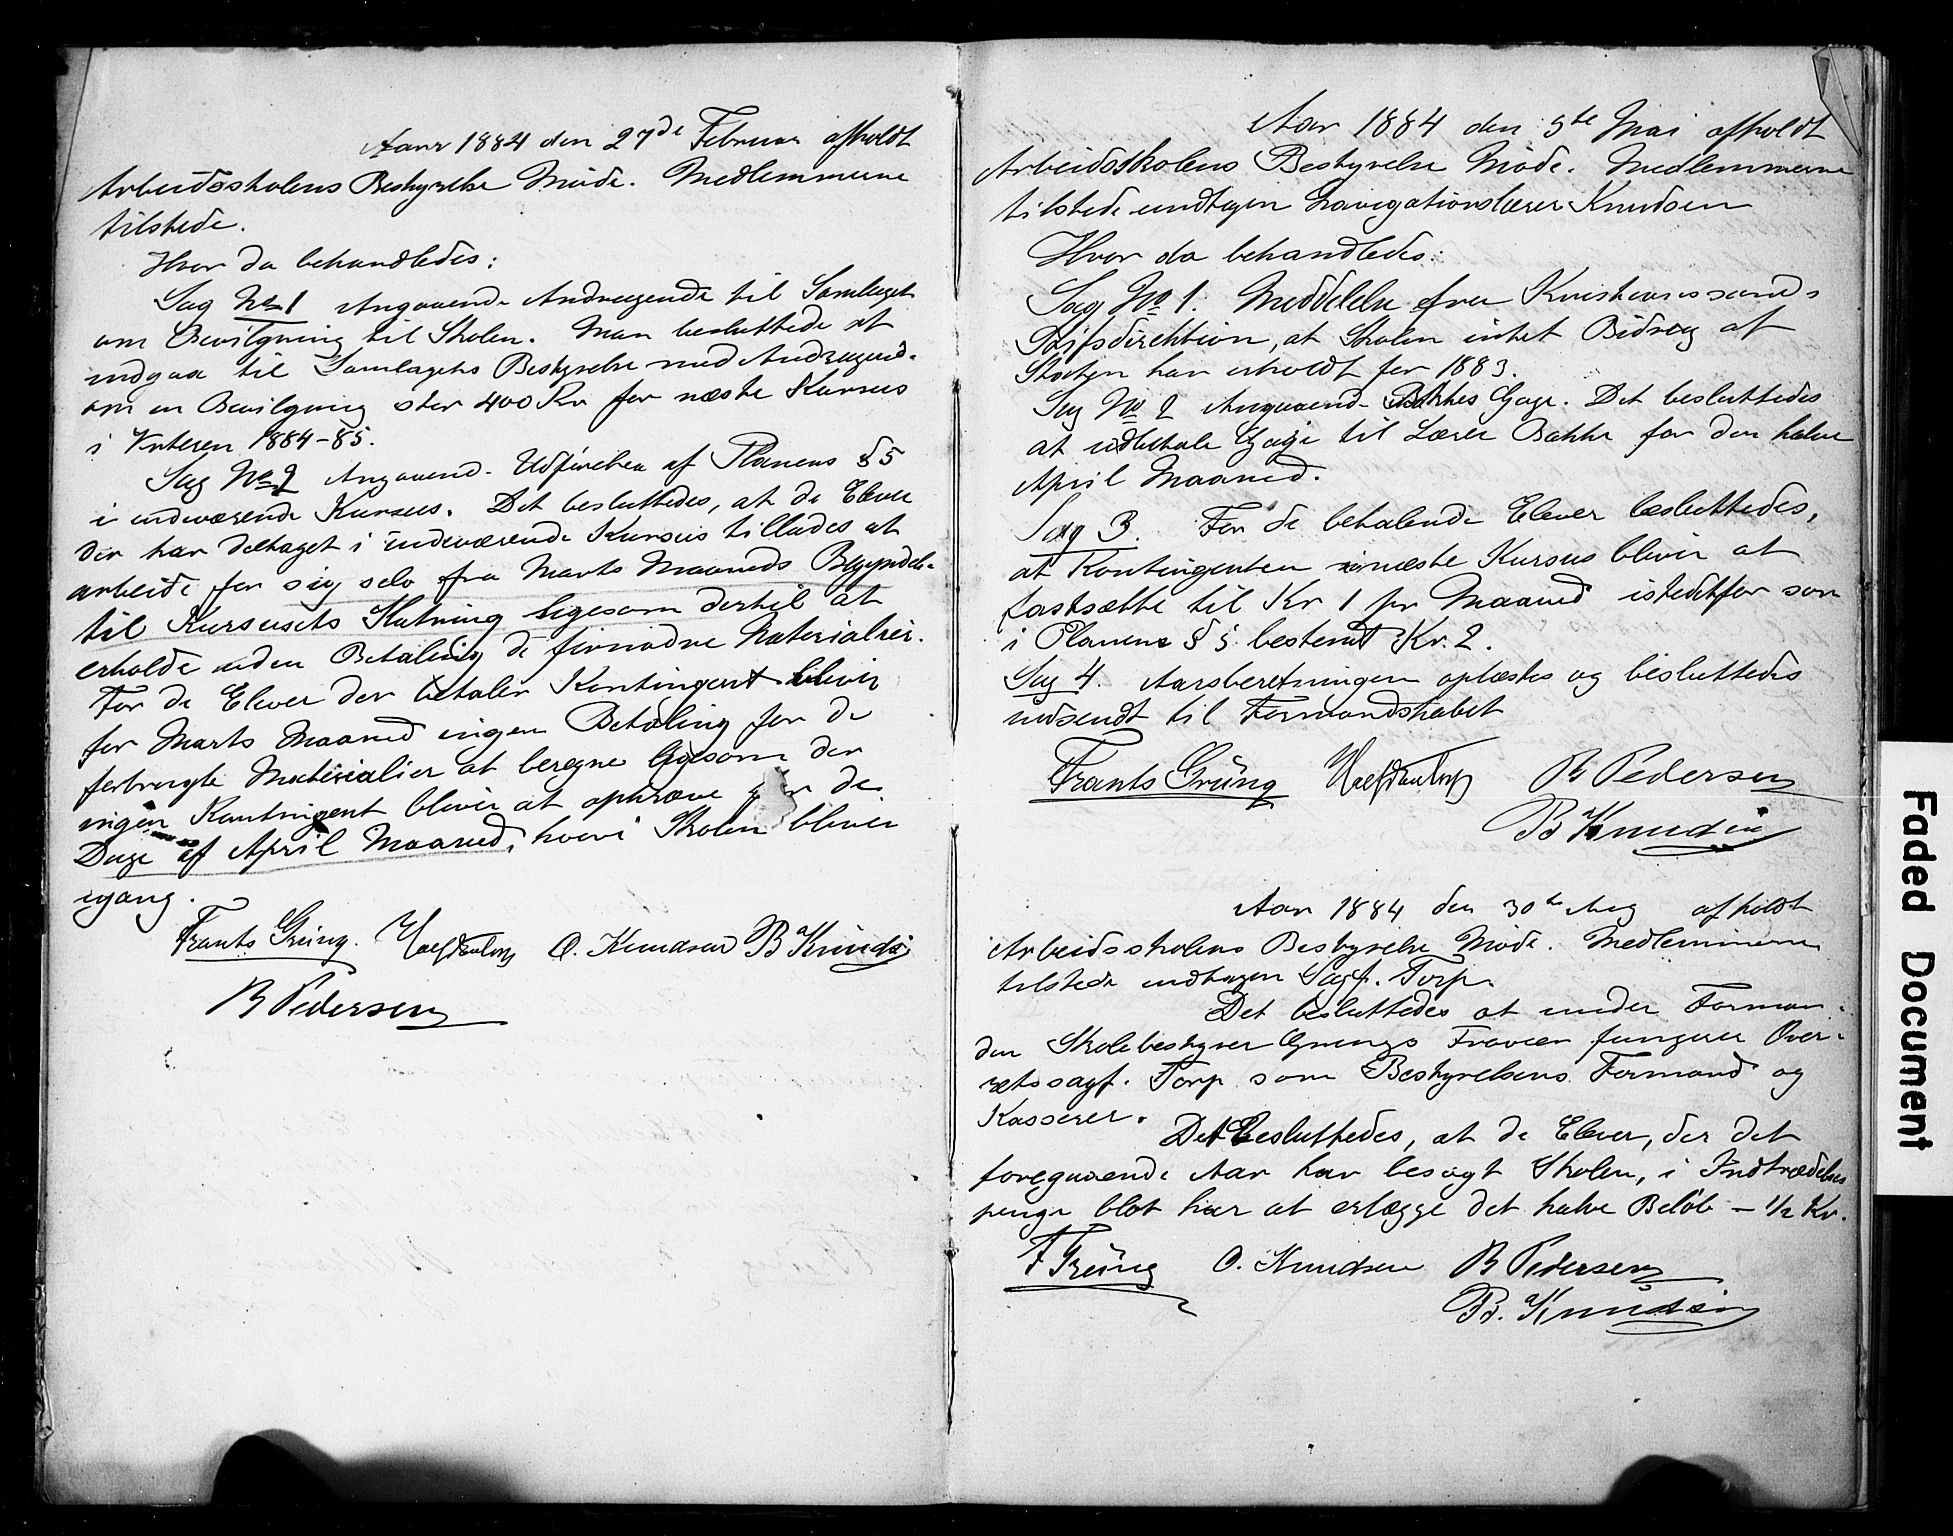 Aar 1884 den 27de Februar afholdt
Arbeidsskolens Bestyrelse Møde. Medlemmerne
tilstede.
Hvor da behandledes:
Sag No 1 Angaaende Andragende til Samlaget
om Bevilgning til Skolen. Man besluttede at
indgaa til Samlagets Bestyrelse med Andragende
om en Bevilgning stor 400 Kr for næste Kursus
i Vinteren 1884-85.
Sag No 2 Angaaend. Udførelsen af Planens § 5
i indeværende Kursus. Det besluttedes, at de Elever
der har deltaget i indeværende Kursus tillades at
arbeide for sig selv fra Marts Maaneds Begyndelse
til Kursusets Slutning ligesom dertil at
erholde uden Betaling de fornødne Materialier.
For de Elever der betaler Kontingent bliver
for Marts Maaned ingen Betaling for de
forbrugte Materialier at beregne ligesom der
ingen Kontingent bliver at opkræve for de
Dage af April Maaned, hvori Skolen bliver
igang.
Frants Grüng. O. Knudsen B Knudsen
B Pedersen
Aar 1884 den 5te Mai afholdt
Arbeidsskolens Bestyrelse Møde. Medlemmerne
tilstede undtagen Navigationslærer Knudsen
Hvor da behandledes:
Sag No 1. Meddelelse fra Kristianssands
Stifsdirektion, at Skolen intet Bidrag af
Staten har erholdt for 1883.
Sag No 2 Angaaend. Bakkes Gage. Det besluttedes
at udbetale Gage til Lærer Bakke for den halve
April Maaned.
Sag 3. For de betalende Elever besluttedes,
at Kontingenten i næste Kursus bliver at
fastsætte til Kr 1 pr Maaned istedetfor som
i Planens § 5 bestemt Kr. 2.
Sag 4. Aarsberetningen oplæstes og besluttedes
indsendt til Formandskabet
Frants Grüng B Pedersen
B Knudsen
Aar 1884 den 30te Aug afholdt
Arbeidsskolens Bestyrelse Møde. Medlemmerne
tilstede undtagen Sagf. Torp.
Det besluttedes at under Forman-
den Skolebestyrer Grüngs Fravær fungerer Over-
retssagf. Torp som Bestyrelsens Formand og
Kasserer.
Det besluttedes, at de Elever, der det
foregaaende Aar har besøgt Skolen, i Indtrædelses
penge blot har at erlægge det halve Beløb - 1/2 Kr.
F Grüng O. Knudsen B Pedersen
B. Knudsen
Faded Document